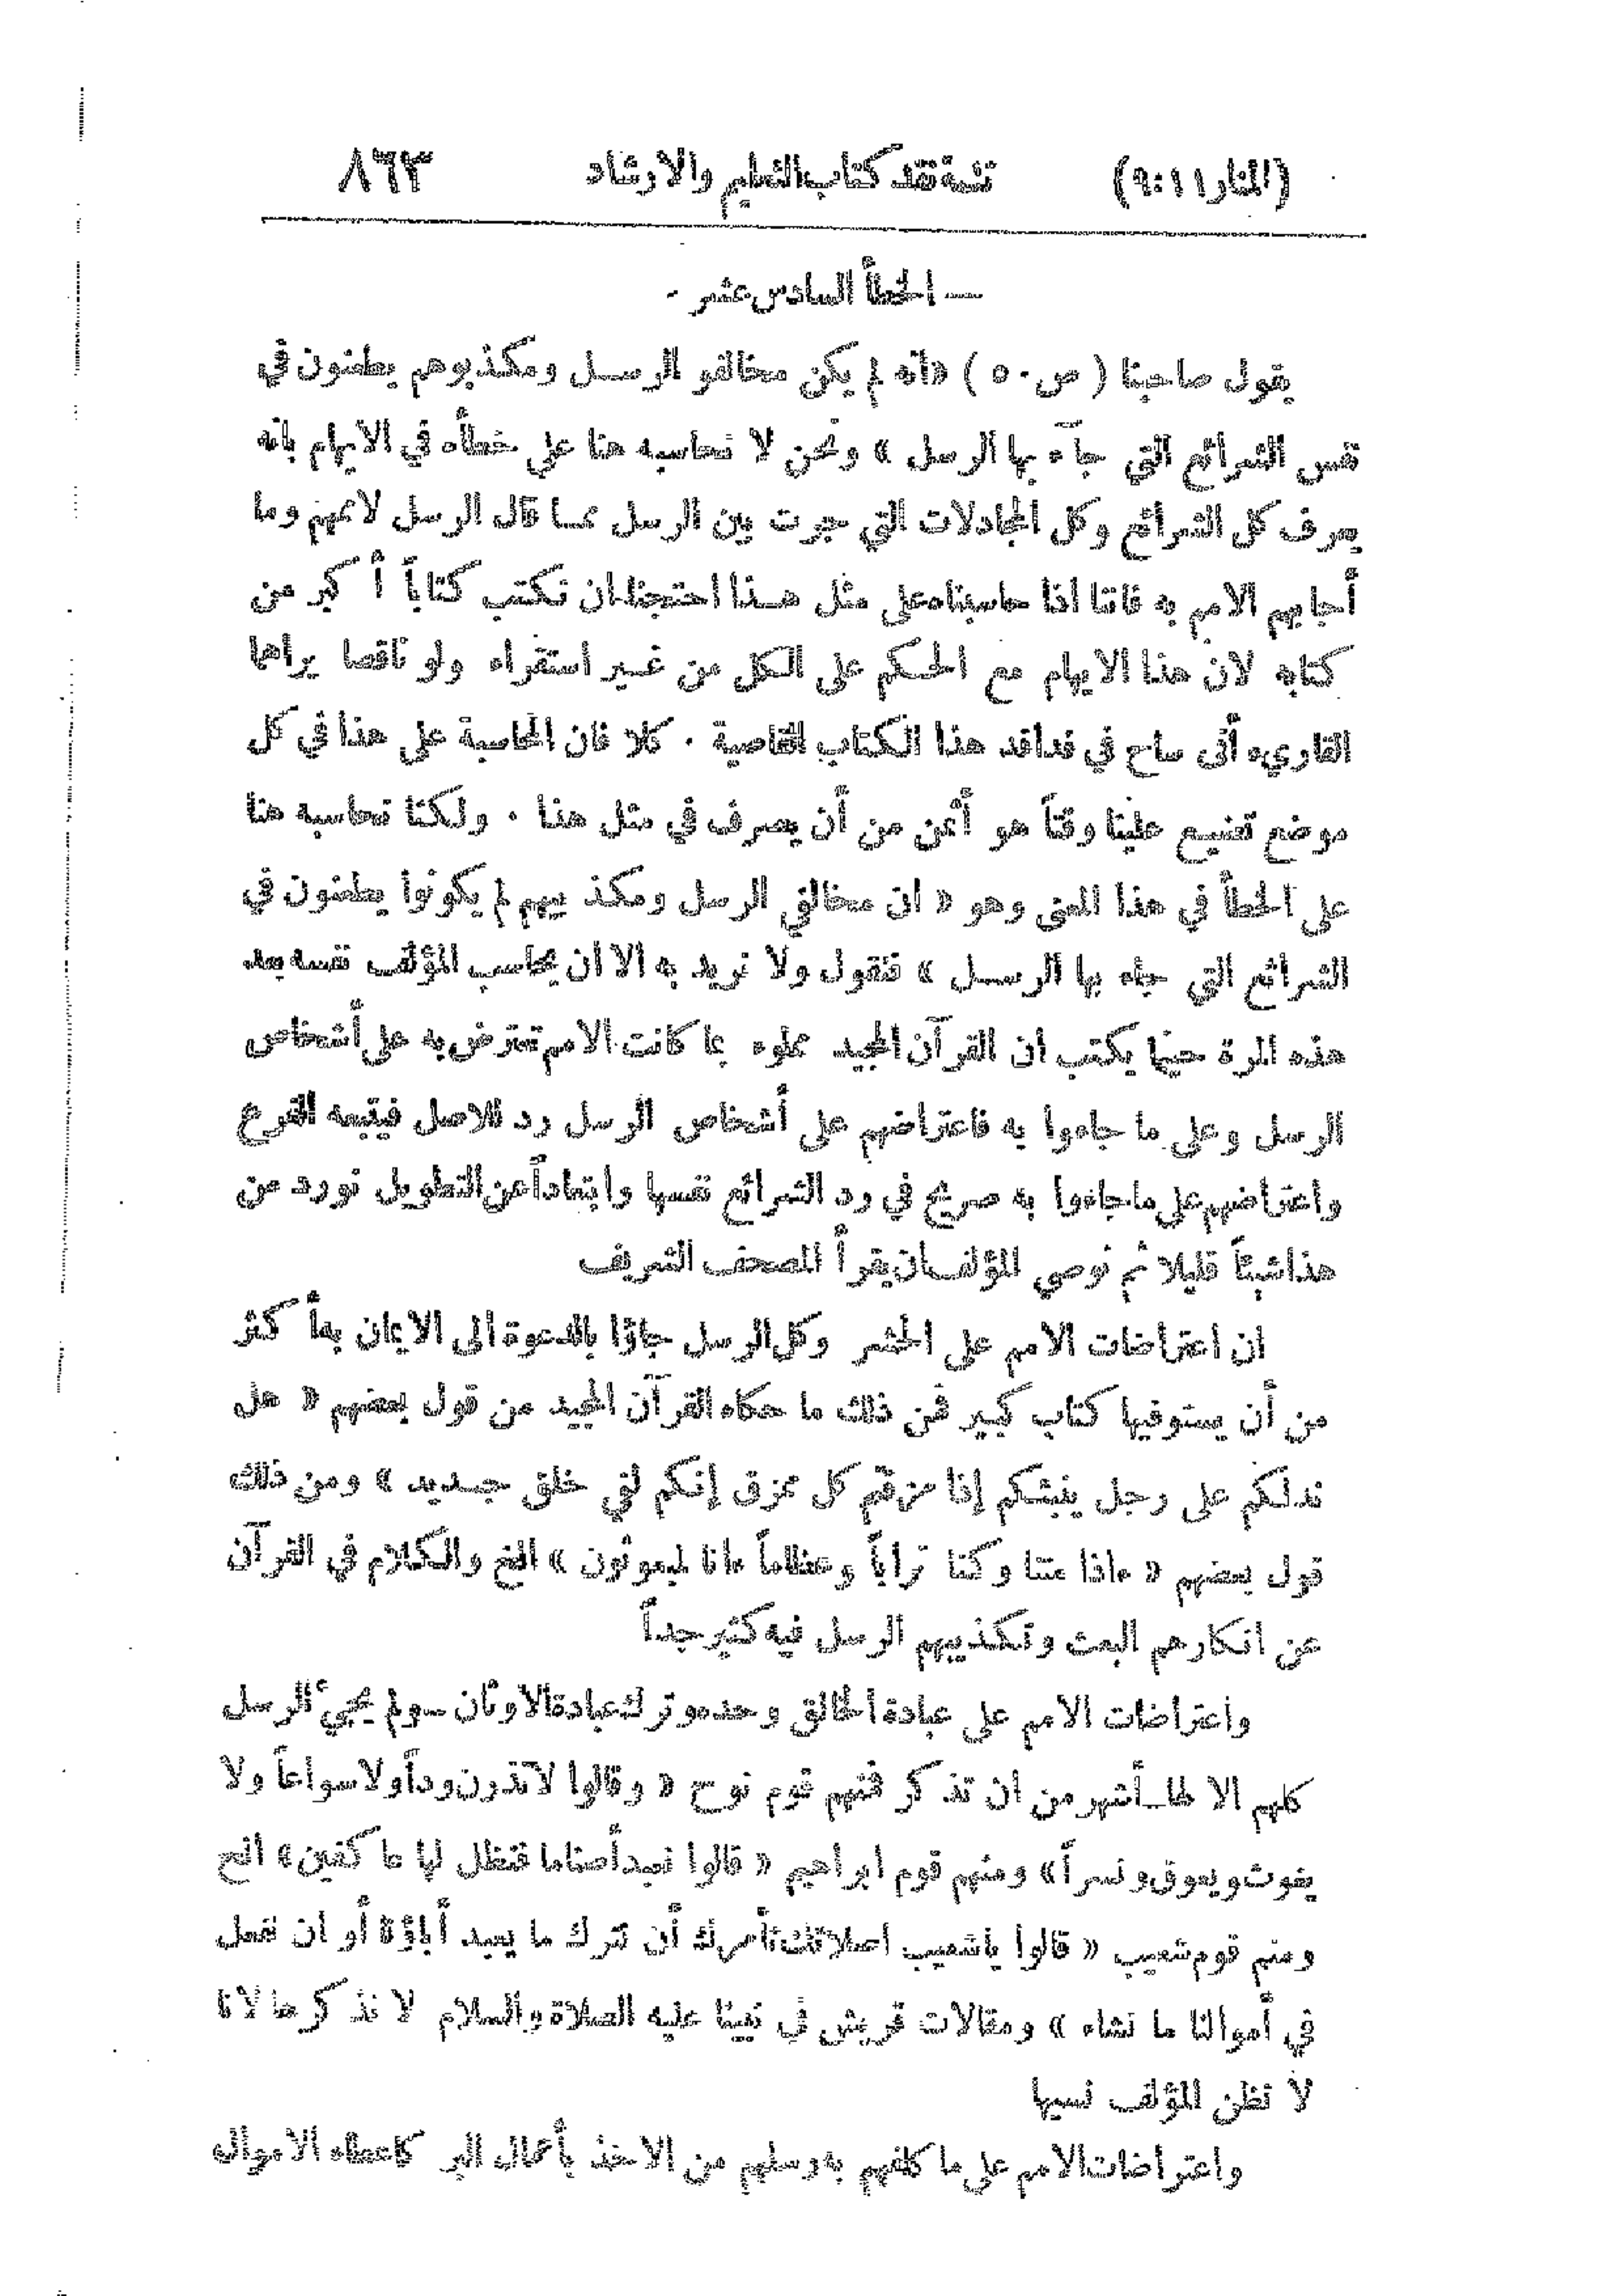 (المنار ١١:٩) تتمة نقد كتاب التعليم والارشاد ٨٦٣
— الخطأ السادس عشر -
يقول صاحبنا ( ص٥٠ ) «انه لم يكن مخالفو الرسل ومكذبوهم يطعنون في
نفس الشرائع التي جآء بها الرسل » ونحن لا نحاسبه هنا على خطأه في الايهام بانه
يعرف كل الشرائع وكل المجادلات التي جرت بين الرسل مما قال الرسل لاممهم وما
أجابهم الامم به فاننا اذا حاسبناه على مثل هذا احتجنا ان نكتب كتاباً أ كبر من
كتابه لان هذا الايهام مع الحكم على الكل من غير استقراء ولو ناقصا يراهما
القاريء أنى ساح في فدافد هذا الكتاب القاصية . كلا فان المحاسبة على هذا في كل
موضع تضيع علينا وقتاً هو أثمن من أن يصرف في مثل هذا . ولكنا نحاسبه هنا
على الخطأ في هذا المعنى وهو « ان مخالفي الرسل ومكذ بيهم لم يكونوا يطعنون في
الشرائع التي جاء بها الرسل » فنقول ولا نريد به الا ان يحاسب المؤلف نفسه بعد
هذه المرة حينما يكتب ان القرآن المجيد مملوء بما كانت الامم تعترض به على أشخاص
الرسل وعلى ما جاءوا به فاعتراضهم على أشخاص الرسل رد للاصل فيتبعه الفرع
واعتراضهم على ما جاءوا به صريح في رد الشرائع نفسها وابتعاداً عن التطويل نورد من
هذا شيئاً قليلا ثم نوصي المؤلف ان يقرأ المصحف الشريف
ان اعتراضات الامم على الحشر وكل الرسل جاؤا بالدعوة الى الايمان به أ كثر
من أن يستوفيها كتاب كبير فمن ذلك ما حكاه القرآن المجيد من قول بعضهم « هل
ندلكم على رجل ينبئكم إذا مزقتم كل ممزق إنكم لفي خلق جديد » ومن ذلك
قول بعضهم « ءاذا متنا وكنا تراباً وعظاماً ءانا لمبعوثون » الخ والكلام في القرآن
عن انكارهم البعث وتكذيبهم الرسل فيه كثير جداً
واعتراضات الامم على عبادة الخالق وحده وترك عبادة الاوثان ــ ولم يجيء الرسل
كلهم الا لها ــ أشهر من ان تذ كر فمنهم قوم نوح « وقالوا لا تذرن وداً ولا سواعاً ولا
يغوث ويعوق ونسراً » ومنهم قوم ابراهيم « قالوا نعبد أصناما فنظل لها عا كفين » الخ
ومنهم قوم شعيب « قالوا ياشعيب اصلاتك تأمرك أن نترك ما يعبد أباؤنا أو ان نفعل
في أموالنا ما نشاء » ومقالات قريش في نبينا عليه الصلاة والسلام لا نذ كرها لانا
لا نظن المؤلف نسيها
واعتراضات الامم على ما كلفهم به رسلهم من الاخذ بأعمال البر كاعطاء الاموال